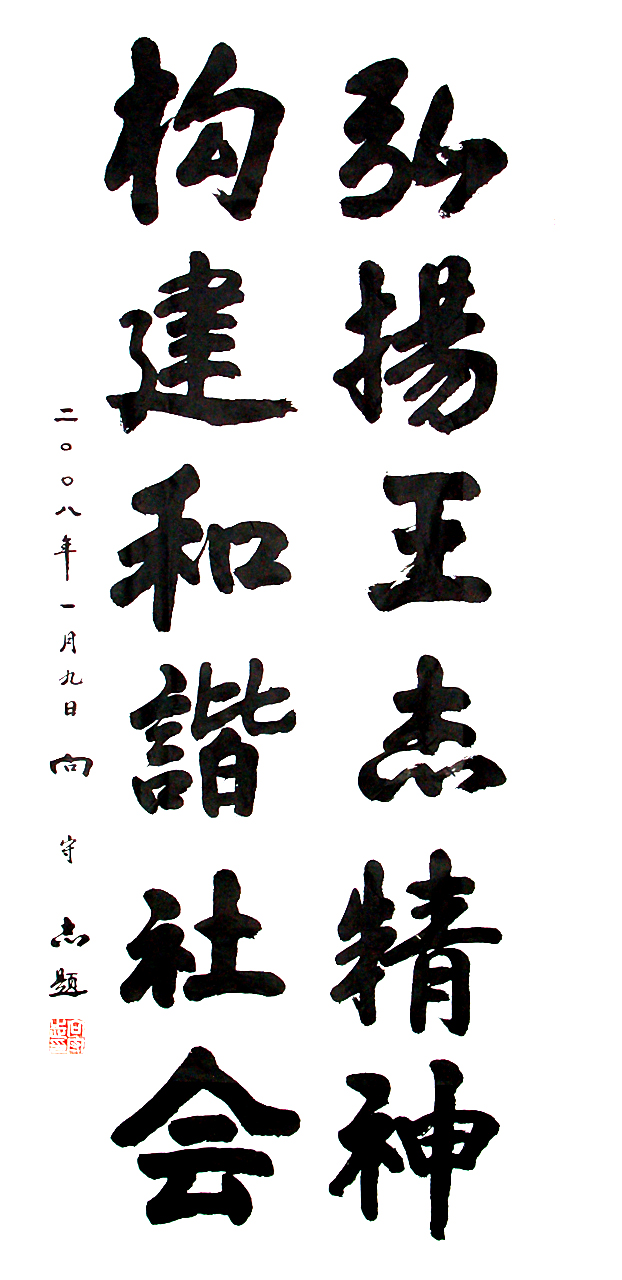 弘揚王杰精神
构建和諧社会
二〇〇八年一月九日 向守志题